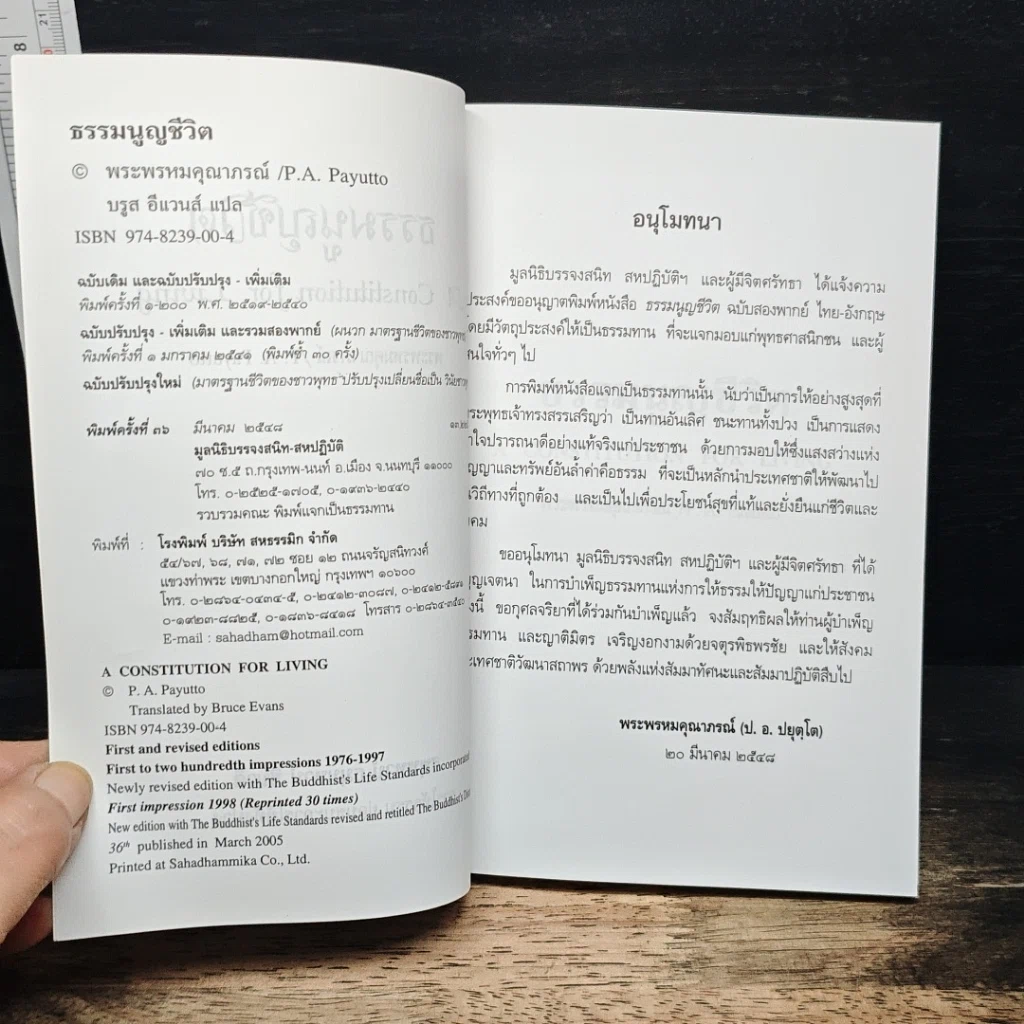 ธรรมนูญชีวิต
© พระพรหมคุณาภรณ์ /P.A. Payutto
บรูส อีแวนส์ แปล
ISBN 974-8239-00-4
ฉบับเดิม และฉบับปรับปรุง - เพิ่มเติม
พิมพ์ครั้งที่ ๑-๒๐๐ พ.ศ. ๒๕๑๙-๒๕๔๐
ฉบับปรับปรุง - เพิ่มเติม และรวมสองพากย์ (ผนวก มาตรฐานชีวิตของชาวพุทธ
พิมพ์ครั้งที่ ๑ มกราคม ๒๕๔๑ (พิมพ์ซ้ำ ๓๐ ครั้ง)
ฉบับปรับปรุงใหม่ (มาตรฐานชีวิตของชาวพุทธ ปรับปรุงเปลี่ยนชื่อเป็น
พิมพ์ครั้งที่ ๓๖ มีนาคม ๒๕๔๘
มูลนิธิบรรจงสนิท-สหปฏิบัติ
๗๐ ซ.๕ ถ.กรุงเทพ-นนท์ อ.เมือง จ.นนทบุรี ๑๑๐๐๐
โทร. ๐-๒๕๒๕-๑๗๐๕, ๐-๑๙๓๖-๒๔๔๐
รวบรวมคณะ พิมพ์แจกเป็นธรรมทาน
พิมพ์ที่ : โรงพิมพ์ บริษัท สหธรรมิก จำกัด
๕๔/๖๗, ๖๘, ๗๑, ๗๒ ซอย ๑๒ ถนนจรัญสนิทวงศ์
แขวงท่าพระ เขตบางกอกใหญ่ กรุงเทพฯ ๑๐๖๐๐
โทร. ๐-๒๘๖๔-๐๔๓๔-๕, ๐-๒๔๑๒-๓๐๘๗,
๐-๑๙๒๓-๘๘๒๕, ๐-๑๘๓๖-๘๔๑๘ โทรสาร
E-mail : sahadham@hotmail.com
A CONSTITUTION FOR LIVING
© P. A. Payutto
Translated by Bruce Evans
ISBN 974-8239-00-4
First and revised editions
First to two hundredth impressions 1976-1997
Newly revised edition with The Buddhist's Life Standards
First impression 1998 (Reprinted 30 times)
New edition with The Buddhist's Life Standards revised and retitled The Buddhist's
36th published in March 2005
Printed at Sahadhammika Co., Ltd.
อนุโมทนา
มูลนิธิบรรจงสนิท สหปฏิบัติฯ และผู้มีจิตศรัทธา ได้แจ้งความ
ประสงค์ขออนุญาตพิมพ์หนังสือ ธรรมนูญชีวิต ฉบับสองพากย์ ไทย-อังกฤษ
โดยมีวัตถุประสงค์ให้เป็นธรรมทาน ที่จะแจกมอบแก่พุทธศาสนิกชน และผู้
สนใจทั่วๆ ไป
การพิมพ์หนังสือแจกเป็นธรรมทานนั้น นับว่าเป็นการให้อย่างสูงสุดที่
ระพุทธเจ้าทรงสรรเสริญว่า เป็นทานอันเลิศ ชนะทานทั้งปวง เป็นการแสดง
้ำใจปรารถนาดีอย่างแท้จริงแก่ประชาชน ด้วยการมอบให้ซึ่งแสงสว่างแห่ง
ัญญาและทรัพย์อันล้ำค่าคือธรรม ที่จะเป็นหลักนำประเทศชาติให้พัฒนาไป
นวิถีทางที่ถูกต้อง และเป็นไปเพื่อประโยชน์สุขที่แท้และยั่งยืนแก่ชีวิตและ
งคม
ขออนุโมทนา มูลนิธิบรรจงสนิท สหปฏิบัติฯ และผู้มีจิตศรัทธา ที่ได้
ุญเจตนา ในการบำเพ็ญธรรมทานแห่งการให้ธรรมให้ปัญญาแก่ประชาชน
งนี้ ขอกุศลจริยาที่ได้ร่วมกันบำเพ็ญแล้ว จงสัมฤทธิผลให้ท่านผู้บำเพ็ญ
รมทาน และญาติมิตร เจริญงอกงามด้วยจตุรพิธพรชัย และให้สังคม
ะเทศชาติวัฒนาสถาพร ด้วยพลังแห่งสัมมาทัศนะและสัมมาปฏิบัติสืบไป
พระพรหมคุณาภรณ์ (ป. อ. ปยุตฺโต)
๒๐ มีนาคม ๒๕๔๘